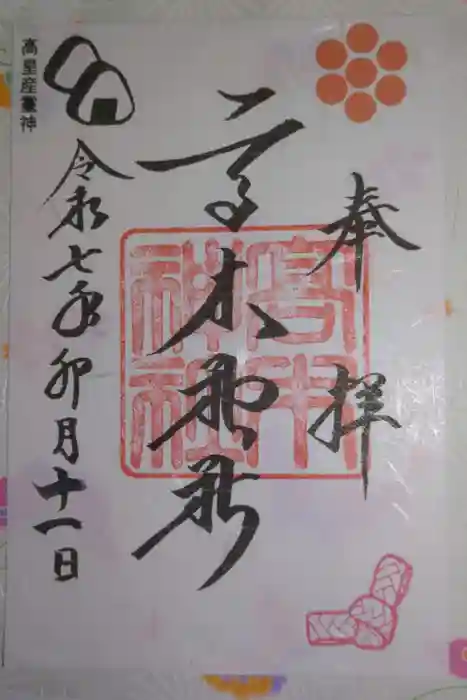 奉拝
高木神社
高木神社
令和七年卯月十一日
高皇産霊神